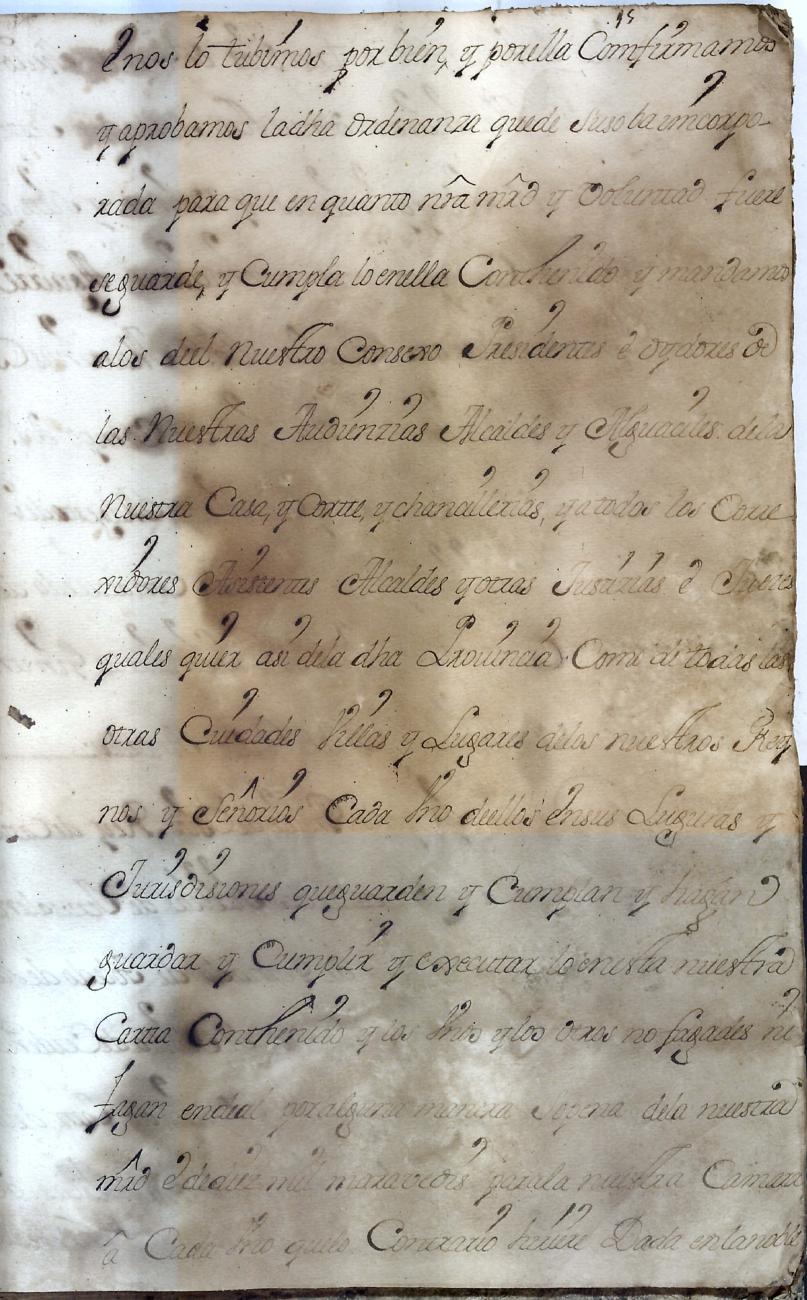 é nos lo tubimos por bien, y por ella Comfirmamos
y aprobamos la dha ordenanza que de suso ba imcorpo-
rada para que en quanto nrã mrd y Voluntad fuere
se guarde, y Cumpla lo en ella Conthenido y mandamos
alos deel Nuestro Consexo Presidentes é oydores de
las Nuestras Audienzias Alcaldes y Alguaciles dela
Nuestra Casa, y Cortte, y chanzillerias, y a todos los Corre
xidores Asistentes Alcaldes y otras Justizias é Jueces
quales quier asi dela dha Provincia Como de todas las
otras Ciudades Villas y Lugares delos nuestros Rey
nos y Señorios Cada Vno deellos en sus Lugares y
Jurisdisiones que guarden y Cumplan y hagan
guardar y Cumplir y executar lo en esta nuestra
Cartta Conthenido y los Vnos y los otros no fagades ni
fagan endeal por alguna manera sopena dela nuestra
mrd é de diez mil maravedis para la nuestra Camara
a Cada Vno que lo Contrario hiciere Dada en la noble